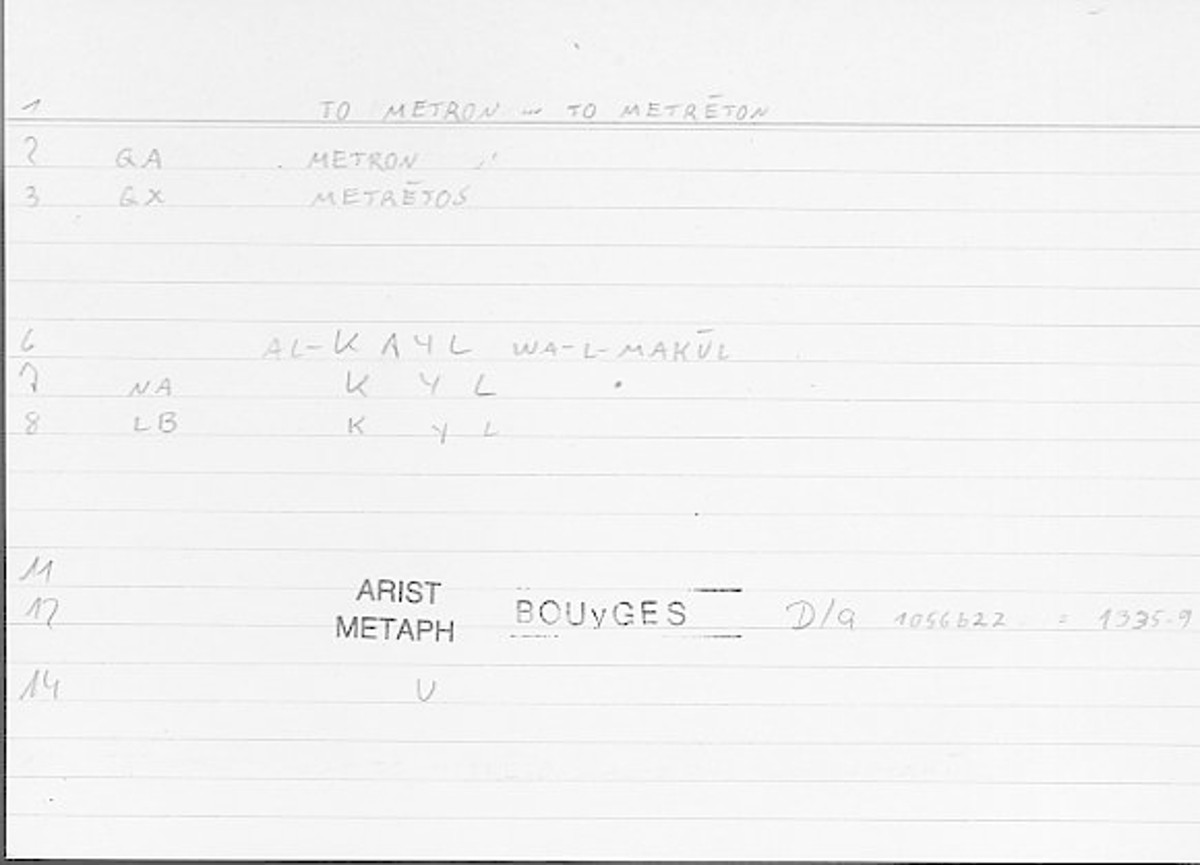 1 TO METRON ... TO METRĒTON
2 QA METRON
3 QX METRĒTOS
6 AL-KAYL WA-L-MAKŪL
7 NA K Y L
8 LB K Y L
11 ARIST
12 METAPH BOUyGES D/a 1056b22 = 1335.9
14 U